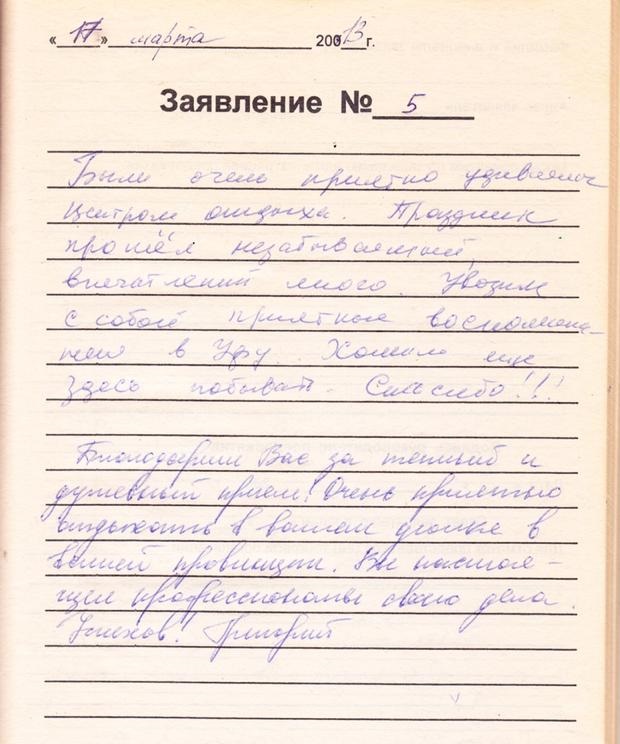 « 17 » марта 2013 г.
Заявление № 5
Были очень приятно удивлены
Центром отдыха. Праздник
прошёл незабываемый,
впечатлений много. Увозим
с собой приятные воспомина-
ния в Уфу. Хотим еще
здесь побывать. Спасибо!!!
Благодарим Вас за теплый и
душевный прием! Очень приятно
отдыхать в вашем домике в
вашей провинции. Вы настоя-
щие профессионалы своего дела.
Успехов!